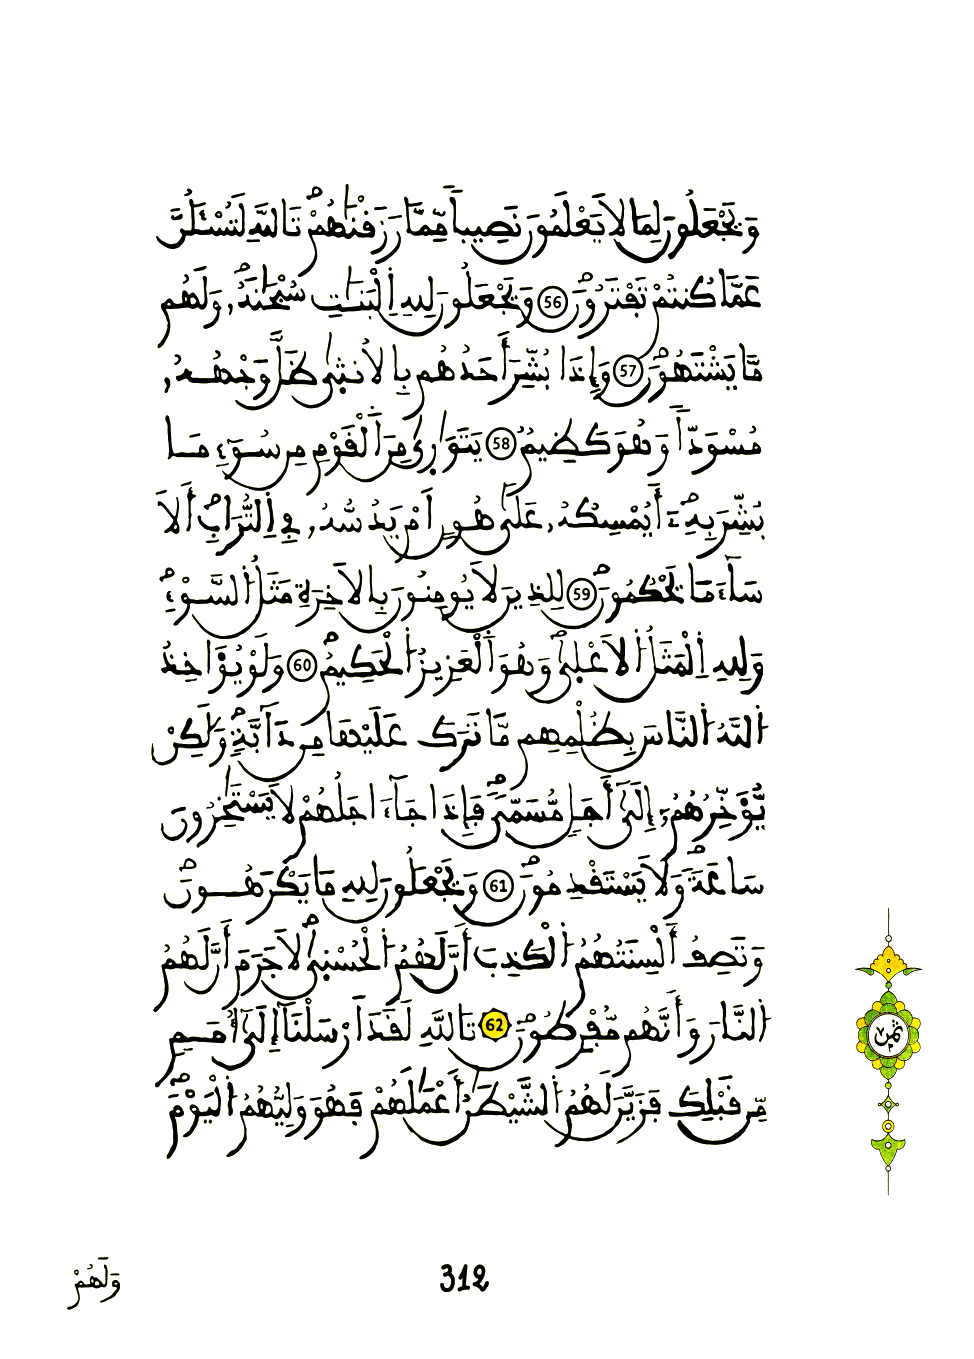 وَيَجْعَلُونَ لِمَا لَا يَعْلَمُونَ نَصِيباً مِّمَّا رَزَقْنَٰهُمْ تَاللَّهِ لَتُسْـَٔلُنَّ
عَمَّا كُنتُمْ تَفْتَرُونَ 56 وَيَجْعَلُونَ لِلهِ اِ۬لْبَنَٰتِ سُبْحَٰنَهُۥ وَلَهُم
مَّا يَشْتَهُونَ 57 وَإِذَا بُشِّرَ أَحَدُهُم بِالُانث۪ىٰ ظَلَّ وَجْهُهُۥ
مُسْوَدّاً وَهُوَ كَظِيمٌ 58 يَتَوَٰر۪ىٰ مِنَ اَ۬لْقَوْمِ مِن سُوٓءِ مَا
بُشِّرَ بِهِۦٓ أَيُمْسِكُهُۥ عَلَىٰ هُونٍ أَمْ يَدُسُّهُۥ فِے اِ۬لتُّرَابِ أَلَا
سَآءَ مَا يَحْكُمُونَ 59 لِلذِينَ لَا يُومِنُونَ بِالَاخِرَةِ مَثَلُ اُ۬لسَّوْءِ
وَلِلهِ اِ۬لْمَثَلُ اُ۬لَاعْل۪ىٰ وَهُوَ اَ۬لْعَزِيزُ اُ۬لْحَكِيمُ 60 وَلَوْ يُؤَاخِذُ
اُ۬للَّهُ اُ۬لنَّاسَ بِظُلْمِهِم مَّا تَرَكَ عَلَيْهَا مِن دَآبَّةٍ وَلَٰكِنْ
يُّؤَخِّرُهُمُۥٓ إِلَىٰٓ أَجَلٍ مُّسَمّىٗ فَإِذَا جَآءَ اجَلُهُمْ لَا يَسْتَٰخِرُونَ
سَاعَةٗ وَلَا يَسْتَقْدِمُونَ 61 وَيَجْعَلُونَ لِلهِ مَا يَكْرَهُونَ
وَتَصِفُ أَلْسِنَتُهُمُ اُ۬لْكَذِبَ أَنَّ لَهُمُ اُ۬لْحُسْن۪ىٰ لَا جَرَمَ أَنَّ لَهُمُ
اُ۬لنَّارَ وَأَنَّهُم مُّفْرِطُونَ 62 تَاللَّهِ لَقَدَ اَرْسَلْنَآ إِلَىٰٓ أُمَمٍ
مِّن قَبْلِكَ فَزَيَّنَ لَهُمُ اُ۬لشَّيْطَٰنُ أَعْمَٰلَهُمْ فَهُوَ وَلِيُّهُمُ اُ۬لْيَوْمَ
ثمن
وَلَهُمْ
312